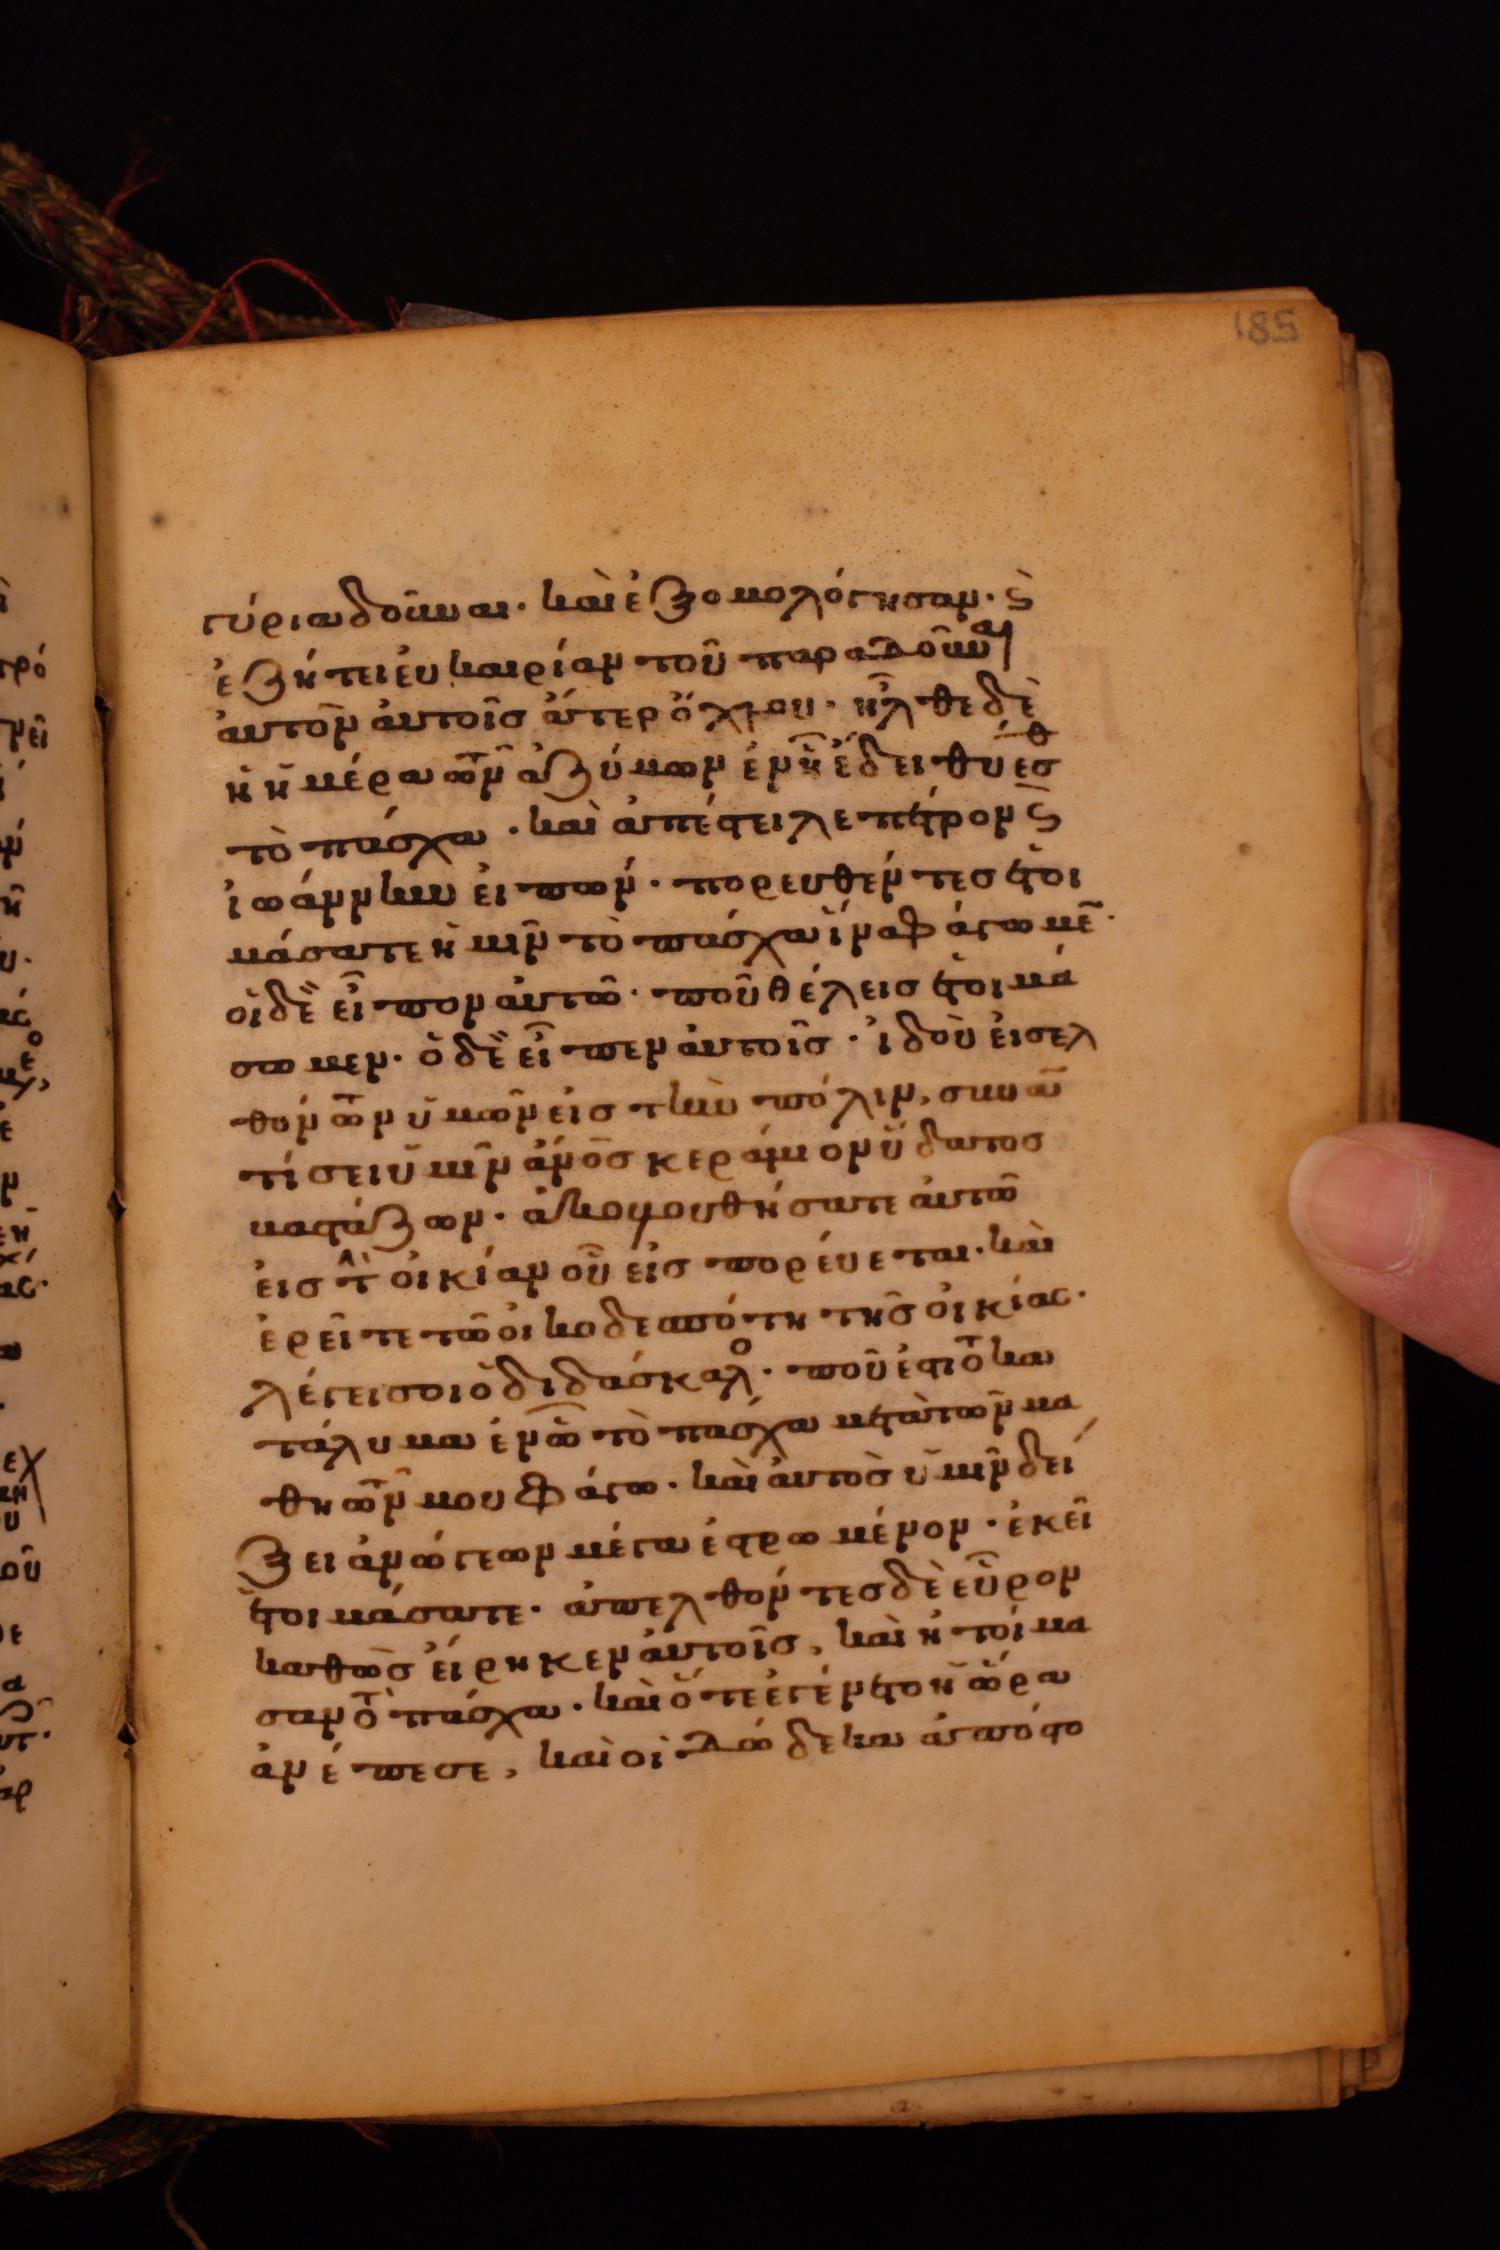 185
γύρια δοῦναι· καὶ ἐξομολόγησαν· ϛ̀
ἐζήτει ἐυκαιρίαν τοῦ παραδοῦναι
ἀυτὸν ἀυτοῖσ ἄτερ ὄχλου· ἦλθε δὲ
ἡ ἡμέρα τῶν ἀζύμων ἐν ἧ ἔδει θύεσθ
τὸ πάσχα · καὶ ἀπέστειλε πέτρον ϛ̀
ἰωάννην ἐιπών· πορευθέντεσ ἑτοι
μάσατε ἡμῖν τὸ πάσχα ἵνα φάγωμε̄·
οἱ δὲ εἶπον ἀυτῶ· ποῦ θέλεισ ἑτοιμά
σωμεν· ὁ δὲ εἶπεν ἀυτοῖσ · ἰδοὺ ἐισελ
θόντων ὑμῶν εἰσ τὴν πόλιν, συναν
τήσει ὑμῖν ἄνοσ̄ κεράμιον ὕδατοσ
βαστάζων· ἀκολουθήσατε ἀυτῶ
ἐισ τὴν οἰκίαν οὗ εἰσπορέυεται· καὶ
ἐρεῖτε τῶ οἰκοδεσπότη τῆσ οἰκίασ·
λέγει σοι ὁ διδάσκαλο· ποῦ ἐστι τὸ κα
τάλυμα ἐν ὧ τὸ πάσχα μετὰ τῶν μα
θητῶν μου φάγω· καὶ ἀυτὸσ ὑμῖν δεί
ξει ἀνώγεων μέγα ἐστρωμένον · ἐκεῖ
ἑτοιμάσατε· ἀπελθόντεσ δὲ εὗρον
καθὼσ ἐίρηκεν ἀυτοῖσ, καὶ ἡτοίμα
σαν τὸ πάσχα· καὶ ὅτε ἐγένετο ἡ ὥρα
ἀνέπεσε, καὶ οἱ δώδεκα ἀπόστο